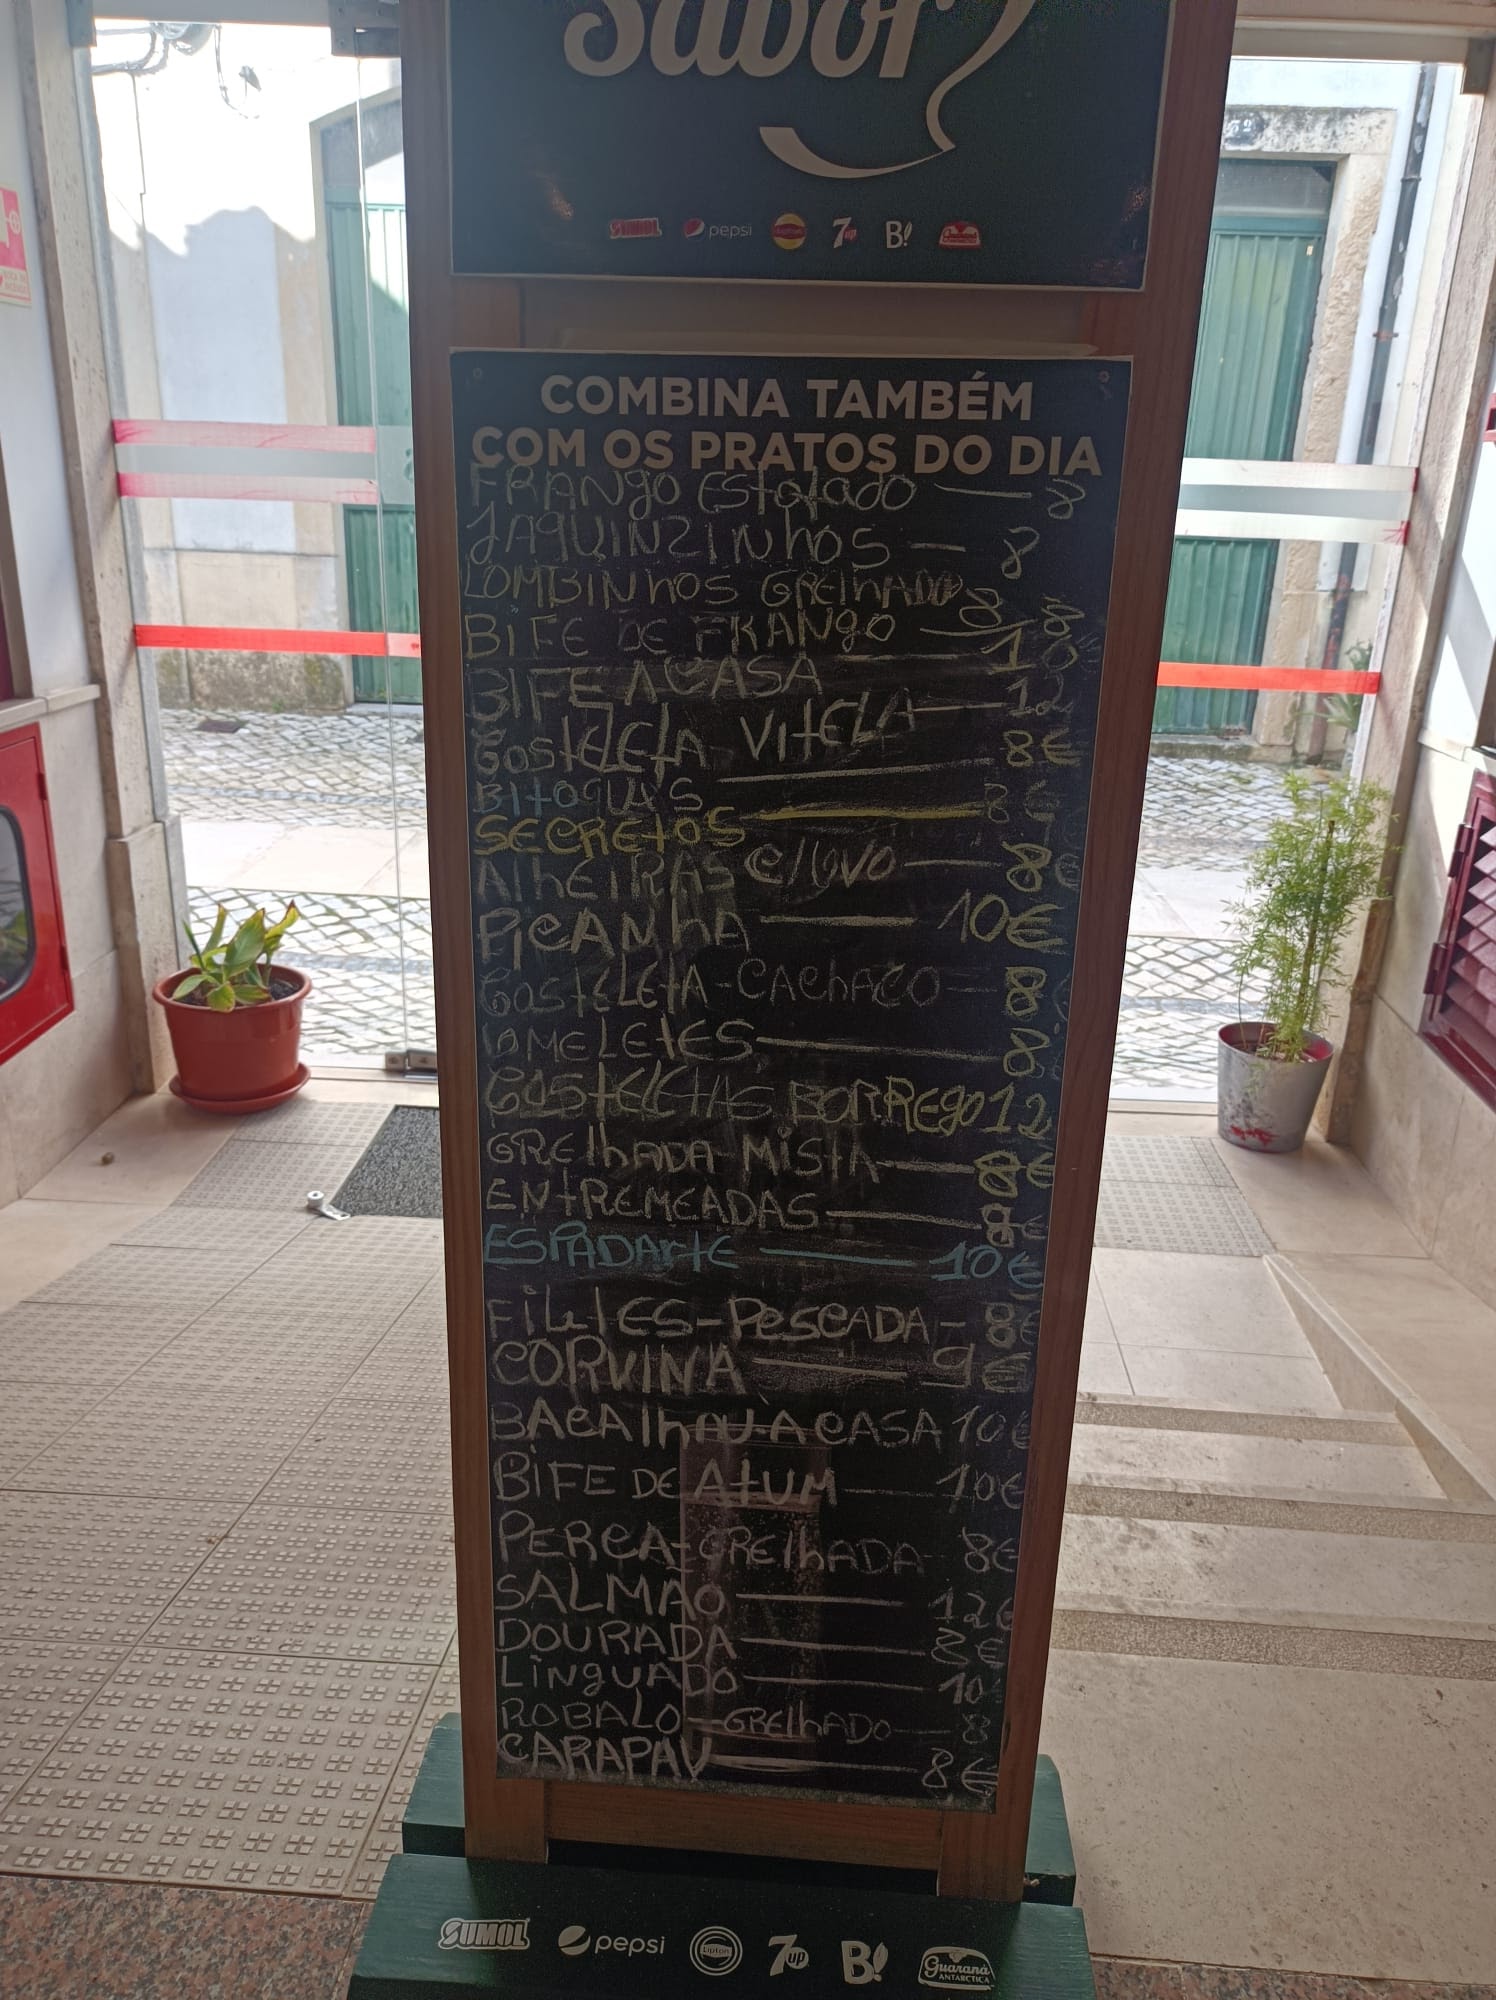 Sabor
SUMOL pepsi Lipton 7up B! Guaraná ANTARCTICA
COMBINA TAMBÉM
COM OS PRATOS DO DIA
FRANGO EStofado — 8
JAQUINZINhOS — 8
LOMBINhOS GRElhADOS 8
BIFE DE FRANgO — 8
BIFE A CASA — 10
COStELEtA VItELA — 12
BItOQUAS — 8€
SECREtOS — 8€
AlhEIRAS C/OVO — 8€
PICANhA — 10€
COStELEtA - CAChAÇO — 8
OMELEtES — 8
COStELEtAS BORREgO 12
GRElhADA MIStA — 8€
ENtREMEADAS — 8€
ESPADARtE — 10€
FILEtES - PESCADA - 8€
CORVINA — 9€
BACAlhAU A CASA 10€
BIFE DE AtUM — 10€
PERCA - GRElhADA - 8€
SALMÃO — 12€
DOURADA — 8€
LINgUADO — 10
ROBALO — GRElhADO — 8
CARAPAU — 8€
SUMOL pepsi Lipton 7up B! Guaraná ANTARCTICA